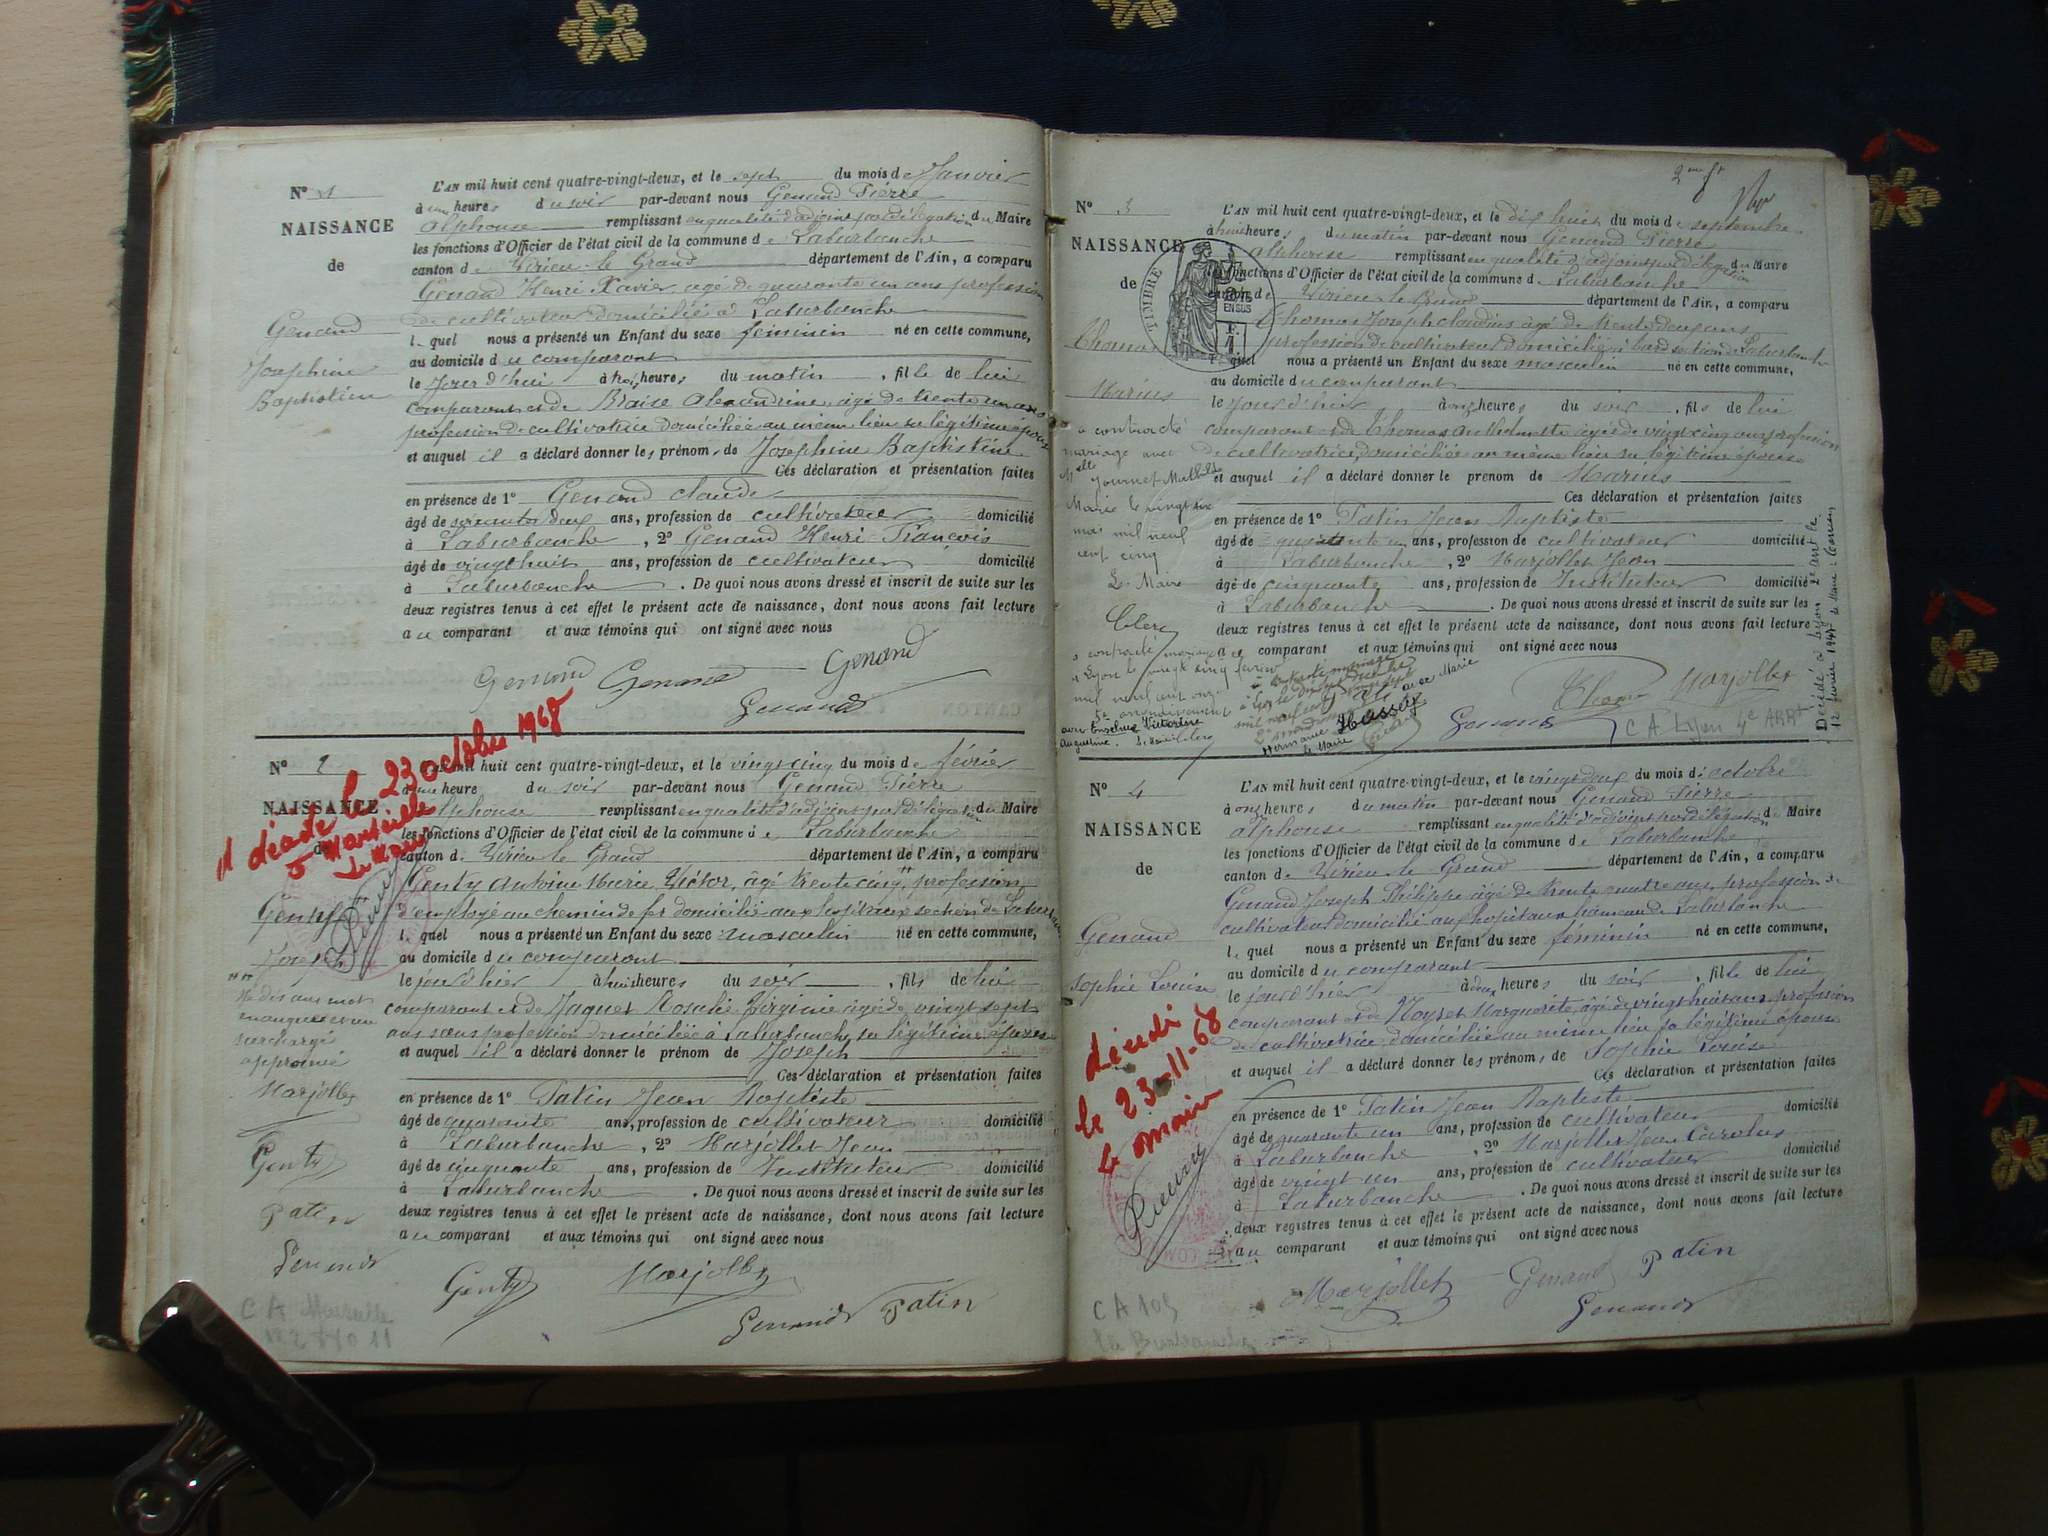 N° 1
NAISSANCE
de
Genand
Joséphine
Baptistine
L'AN mil huit cent quatre-vingt-deux, et le sept du mois de Janvier
à une heure du soir par-devant nous Genand Pierre
Alphonse remplissant en qualité d'adjoint par délégation du Maire
les fonctions d'Officier de l'état civil de la commune de Laburbanche
canton de Virieu-le-Grand département de l'Ain, a comparu
Genand Henri Xavier âgé de quarante un ans profession
de cultivateur domicilié à Laburbanche
lequel nous a présenté un Enfant du sexe féminin né en cette commune,
au domicile du comparant
le jour d'hui à heures du matin, fille de lui
comparant et de Braise Alexandrine, âgée de trente un ans
profession de cultivatrice domiciliée au même lieu sa légitime épouse
et auquel il a déclaré donner les prénoms de Joséphine Baptistine
Ces déclaration et présentation faites
en présence de 1° Genand Claude
âgé de soixante deux ans, profession de cultivateur domicilié
à Laburbanche, 2° Genand Henri François
âgé de vingt huit ans, profession de cultivateur domicilié
à Laburbanche. De quoi nous avons dressé et inscrit de suite sur les
deux registres tenus à cet effet le présent acte de naissance, dont nous avons fait lecture
au comparant et aux témoins qui ont signé avec nous
Genand Genand Genand
Genand
N° 2
NAISSANCE
de
décédé le 23 octobre 1968
à Marseille
Le Maire
Genty
Joseph
mot
manque et un
surchargé
approuvé
Marjollet
Genty
Patin
Genand
C A Marseille
L'AN mil huit cent quatre-vingt-deux, et le vingt cinq du mois de février
à une heure du soir par-devant nous Genand Pierre
Alphonse remplissant en qualité d'adjoint par délégation du Maire
les fonctions d'Officier de l'état civil de la commune de Laburbanche
canton de Virieu-le-Grand département de l'Ain, a comparu
Genty Antoine Marie Victor, âgé trente cinq, profession
d'employé au chemin de fer domicilié aux hôpitaux section de Laburbanche
lequel nous a présenté un Enfant du sexe masculin né en cette commune,
au domicile du comparant
le jour d'hier à huit heures du soir, fils de lui
comparant et de Jaquet Rosalie Virginie âgée de vingt sept
ans sans profession domiciliée à Laburbanche sa légitime épouse
et auquel il a déclaré donner le prénom de Joseph
Ces déclaration et présentation faites
en présence de 1° Patin Jean Baptiste
âgé de quarante ans, profession de cultivateur domicilié
à Laburbanche, 2° Marjollet Jean
âgé de cinquante ans, profession de Instituteur domicilié
à Laburbanche. De quoi nous avons dressé et inscrit de suite sur les
deux registres tenus à cet effet le présent acte de naissance, dont nous avons fait lecture
au comparant et aux témoins qui ont signé avec nous
Genty Marjollet
Genand Patin
N° 3
NAISSANCE
de
TIMBRE
EN SUS
Thomas
Marius
a contracté
mariage avec
Mlle Journet Mathilde
Marie le vingt six
mai mil neuf
cent cinq
Le Maire
Clerc
a contracté mariage
à Lyon le vingt cinq février
mil neuf cent onze
5e arrondissement
avec Victorine
Augustine.
L'AN mil huit cent quatre-vingt-deux, et le dix huit du mois de septembre
à huit heures du matin par-devant nous Genand Pierre
Alphonse remplissant en qualité d'adjoint par délégation du Maire
les fonctions d'Officier de l'état civil de la commune de Laburbanche
canton de Virieu-le-Grand département de l'Ain, a comparu
Thomas Joseph Claudius âgé de trente deux ans
profession de cultivateur domicilié à section de Laburbanche
lequel nous a présenté un Enfant du sexe masculin né en cette commune,
au domicile du comparant
le jour d'hier à onze heures du soir, fils de lui
comparant et de Thomas Anthelmette âgée de vingt cinq ans profession
de cultivatrice, domiciliée au même lieu sa légitime épouse
et auquel il a déclaré donner le prénom de Marius
Ces déclaration et présentation faites
en présence de 1° Patin Jean Baptiste
âgé de quarante un ans, profession de cultivateur domicilié
à Laburbanche, 2° Marjollet Jean
âgé de cinquante ans, profession de Instituteur domicilié
à Laburbanche. De quoi nous avons dressé et inscrit de suite sur les
deux registres tenus à cet effet le présent acte de naissance, dont nous avons fait lecture
au comparant et aux témoins qui ont signé avec nous
Thomas Marjollet
Genand
C A Lyon 4e ARRt
Décédé à Lyon 2e arrt le
12 février 1947
N° 4
NAISSANCE
de
Genand
Sophie Louise
décédé
le 23-11-68
le maire
C A 105
La Burbanche
L'AN mil huit cent quatre-vingt-deux, et le vingt deux du mois d'octobre
à onze heures du matin par-devant nous Genand Pierre
Alphonse remplissant en qualité d'adjoint par délégation du Maire
les fonctions d'Officier de l'état civil de la commune de Laburbanche
canton de Virieu-le-Grand département de l'Ain, a comparu
Genand Joseph Philippe âgé de trente quatre ans, profession de
cultivateur domicilié aux hôpitaux hameau de Laburbanche
lequel nous a présenté un Enfant du sexe féminin né en cette commune,
au domicile du comparant
le jour d'hier à deux heures du soir, fille de lui
comparant et de Marguerite, âgée de vingt huit ans, profession
de cultivatrice domiciliée au même lieu sa légitime épouse
et auquel il a déclaré donner les prénoms de Sophie Louise
Ces déclaration et présentation faites
en présence de 1° Patin Jean Baptiste
âgé de quarante un ans, profession de cultivateur domicilié
à Laburbanche, 2° Marjollet Jean Carolus
âgé de vingt un ans, profession de cultivateur domicilié
à Laburbanche. De quoi nous avons dressé et inscrit de suite sur les
deux registres tenus à cet effet le présent acte de naissance, dont nous avons fait lecture
au comparant et aux témoins qui ont signé avec nous
Marjollet Genand Patin
Genand